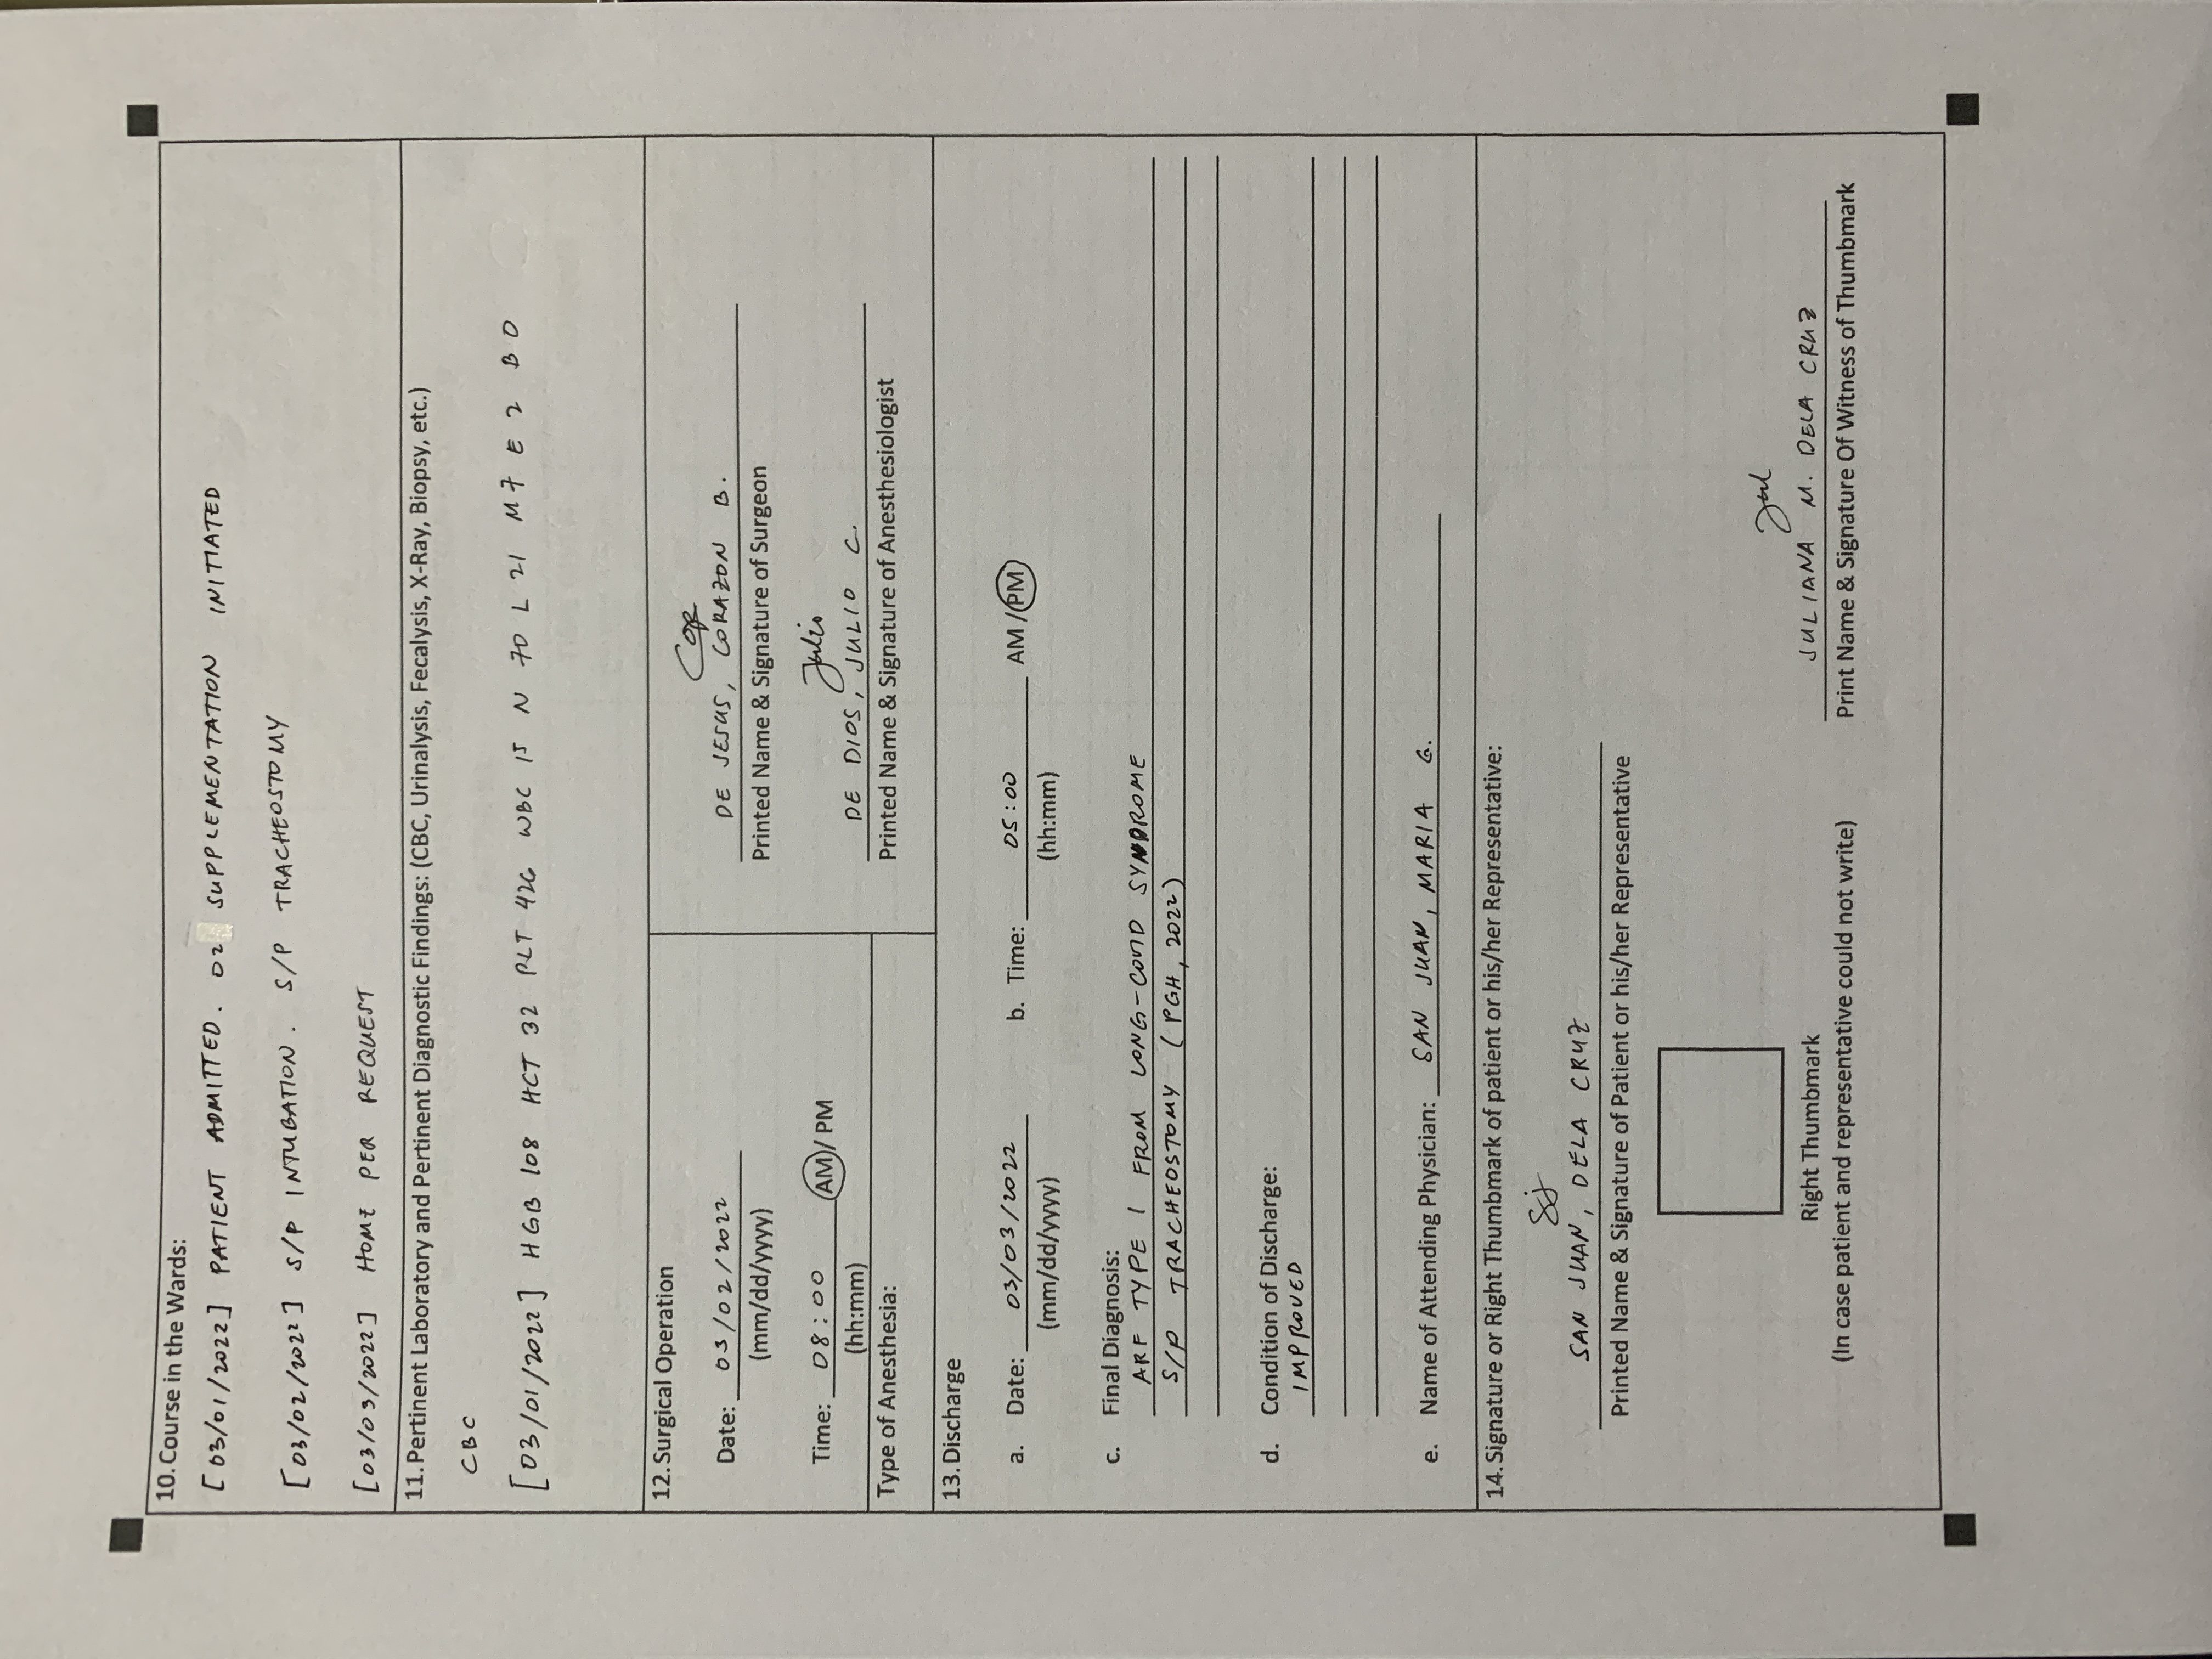 10. Course in the Wards:
[03/01/2022] PATIENT ADMITTED. O2 SUPPLEMENTATION INITIATED
[03/02/2022] S/P INTUBATION. S/P TRACHEOSTOMY
[03/03/2022] HOME PER REQUEST
11. Pertinent Laboratory and Pertinent Diagnostic Findings: (CBC, Urinalysis, Fecalysis, X-Ray, Biopsy, etc.)
CBC
[03/01/2022] HGB 108 HCT 32 PLT 426 WBC 15 N 70 L 21 M 7 E 2 B 0
12. Surgical Operation
Date: 03/02/2022
(mm/dd/yyyy)
Time: 08:00 AM / PM
(hh:mm)
Type of Anesthesia:
Cor
DE JESUS, CORAZON B.
Printed Name & Signature of Surgeon
Julio
DE DIOS, JULIO C.
Printed Name & Signature of Anesthesiologist
13. Discharge
a. Date: 03/03/2022 b. Time: 05:00 AM / PM
(mm/dd/yyyy) (hh:mm)
c. Final Diagnosis:
ARF TYPE 1 FROM LONG-COVID SYNDROME
S/P TRACHEOSTOMY (PGH, 2022)
d. Condition of Discharge:
IMPROVED
e. Name of Attending Physician: SAN JUAN, MARIA G.
14. Signature or Right Thumbmark of patient or his/her Representative:
SJ
SAN JUAN, DELA CRUZ
Printed Name & Signature of Patient or his/her Representative
Right Thumbmark
(In case patient and representative could not write)
Jul
JULIANA M. DELA CRUZ
Print Name & Signature Of Witness of Thumbmark